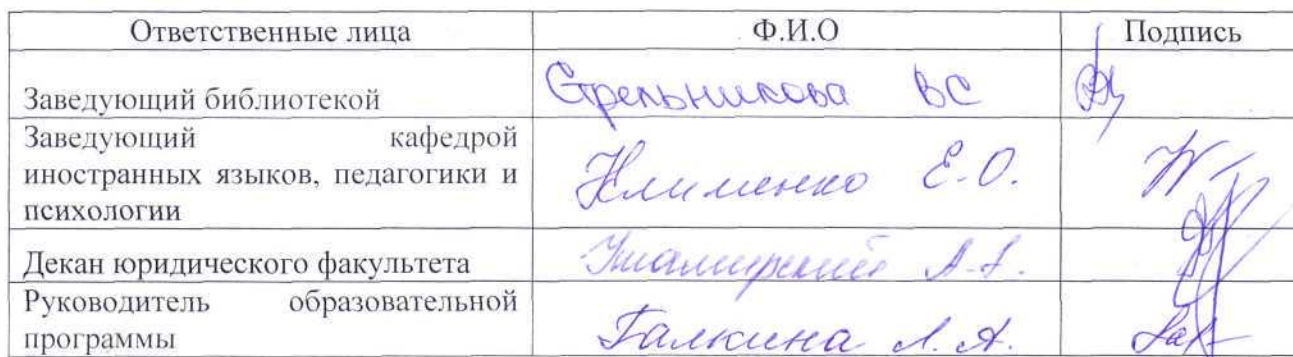 Ответственные лица Ф.И.О Подпись
Заведующий библиотекой Стрельникова ВС
Заведующий кафедрой
иностранных языков, педагогики и
психологии
Клименко Е.О.
Декан юридического факультета
Руководитель образовательной
программы
Галкина Л.А.